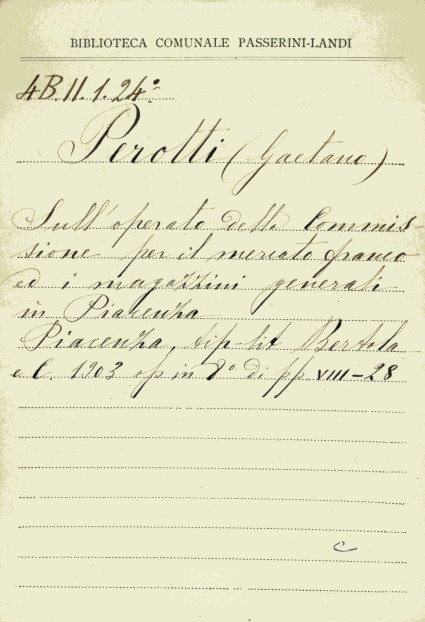 BIBLIOTECA COMUNALE PASSERINI-LANDI
4B.II.1.24°
Perotti (Gaetano)
Sull'operato della Commis-
sione per il mercato franco
ed i magazzini generali
in Piacenza
Piacenza, tip-lit Bertola
e C. 1903 op in 8° di pp VIII-28
c